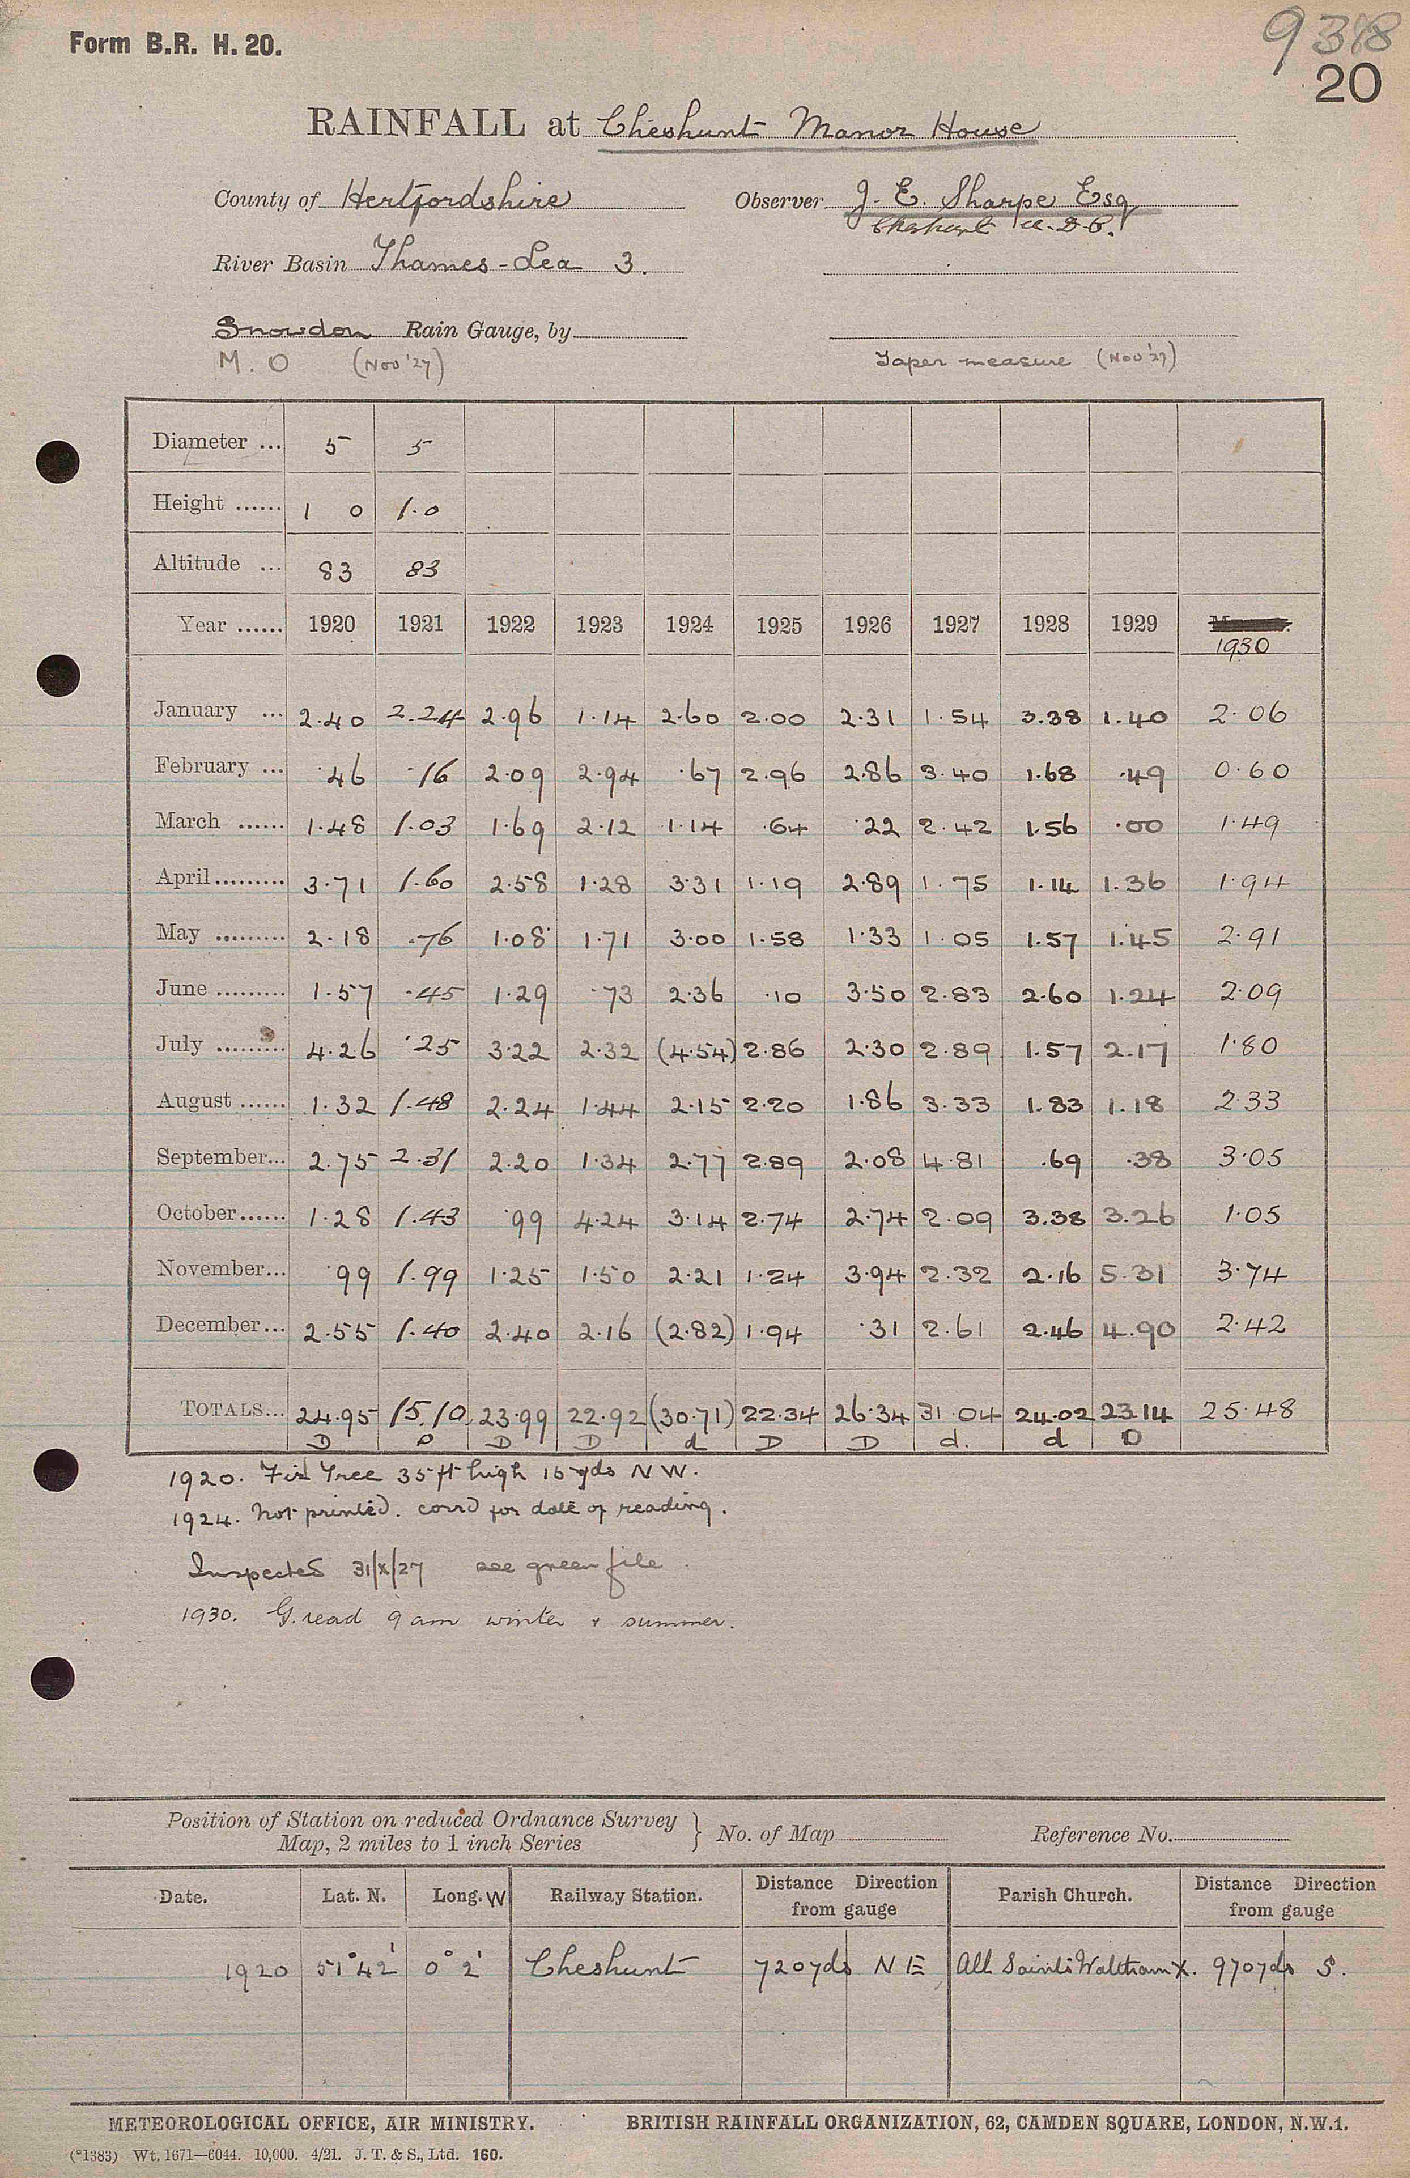 Form B.R. H. 20.
20
RAINFALL at Cheshunt Manor House
County of Hertfordshire Observer J. E. Sharpe Esq
Cheshunt U.D.C.
River Basin Thames - Lea 3.
Snowdon Rain Gauge, by
M. O (Nov '27) Taper measure (Nov '27)
Diameter ... 5 5
Height ...... 1 0 1.0
Altitude ... 83 83
Year ...... 1920 1921 1922 1923 1924 1925 1926 1927 1928 1929
1930
January ... 2.40 2.24 2.96 1.14 2.60 2.00 2.31 1.54 3.38 1.40 2.06
February ... .46 .16 2.09 2.94 .67 2.96 2.86 3.40 1.68 .49 0.60
March ...... 1.48 1.03 1.69 2.12 1.14 .64 .22 2.42 1.56 .00 1.49
April ......... 3.71 1.60 2.58 1.28 3.31 1.19 2.89 1.75 1.14 1.36 1.94
May ......... 2.18 .76 1.08 1.71 3.00 1.58 1.33 1.05 1.57 1.45 2.91
June ......... 1.57 .45 1.29 .73 2.36 .10 3.50 2.83 2.60 1.24 2.09
July ......... 4.26 .25 3.22 2.32 (4.54) 2.86 2.30 2.89 1.57 2.17 1.80
August ...... 1.32 1.48 2.24 1.44 2.15 2.20 1.86 3.33 1.83 1.18 2.33
September... 2.75 2.31 2.20 1.34 2.77 2.89 2.08 4.81 .69 .38 3.05
October ...... 1.28 1.43 .99 4.24 3.14 2.74 2.74 2.09 3.38 3.26 1.05
November... .99 1.99 1.25 1.50 2.21 1.24 3.94 2.32 2.16 5.31 3.74
December... 2.55 1.40 2.40 2.16 (2.82) 1.94 .31 2.61 2.46 4.90 2.42
TOTALS... 24.95 15.10 23.99 22.92 (30.71) 22.34 26.34 31.04 24.02 23.14 25.48
D D D D d D D d. d D
1920. Fir Tree 35 ft high 15 yds N W.
1924. Not printed. corrd for date of reading.
Inspected 31/X/27 see green file.
1930. G. read 9 am winter & summer.
Position of Station on reduced Ordnance Survey
Map, 2 miles to 1 inch Series } No. of Map Reference No.
Date. Lat. N. Long. W Railway Station. Distance Direction from gauge Parish Church. Distance Direction from gauge
1920 51° 42' 0° 2' Cheshunt 720 yds N E All Saints Waltham X. 970 yds S.
METEOROLOGICAL OFFICE, AIR MINISTRY. BRITISH RAINFALL ORGANIZATION, 62, CAMDEN SQUARE, LONDON, N.W.1.
(*1383) Wt. 1671—6044. 10,000. 4/21. J. T. & S., Ltd. 160.